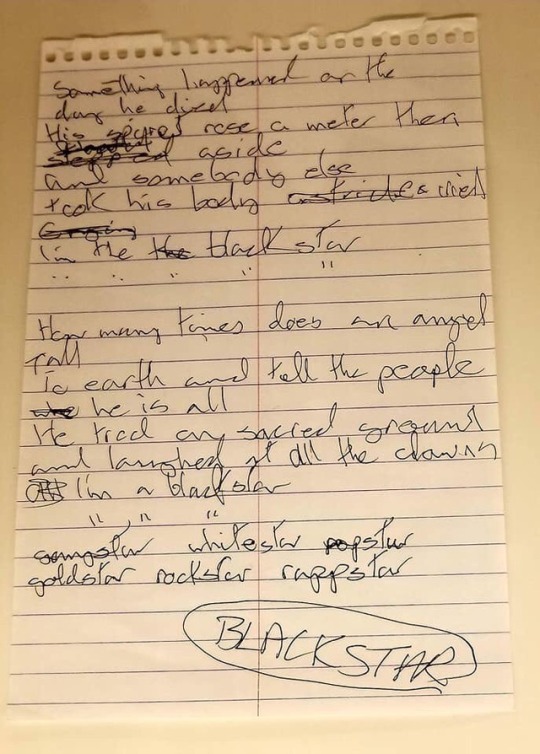 Something happened on the
day he died
His spirit rose a meter then
stepped aside
and somebody else
took his body and cried
I'm the the black star
" " " " "
How many times does an angel
fall
To earth and tell the people
he is all
He trod on sacred ground
and laughed at all the clowns
I'm a blackstar
" " "
gangstar whitestar popstar
goldstar rockstar rappstar
BLACKSTAR